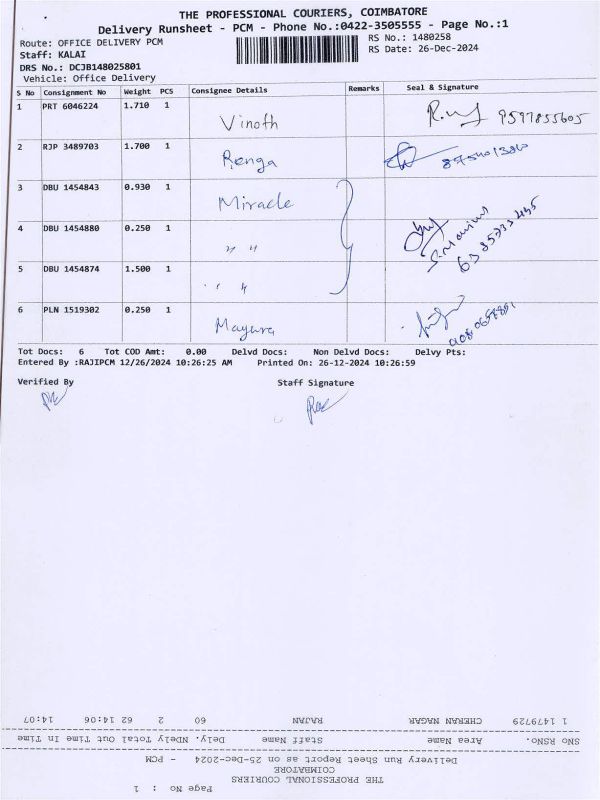 THE PROFESSIONAL COURIERS, COIMBATORE
Delivery Runsheet - PCM - Phone No.:0422-3505555 - Page No.:1
Route: OFFICE DELIVERY PCM
RS No.: 1480258
Staff: KALAI
RS Date: 26-Dec-2024
DRS No.: DCJB148025801
Vehicle: Office Delivery
S No Consignment No Weight PCS Consignee Details Remarks Seal & Signature
1 PRT 6046224 1.710 1 Vinoth 9597855605
2 RJP 3489703 1.700 1 Renga
3 DBU 1454843 0.930 1 Miracle
4 DBU 1454880 0.250 1 " "
5 DBU 1454874 1.500 1 " "
6 PLN 1519302 0.250 1 Mayura
Tot Docs: 6 Tot COD Amt: 0.00 Delvd Docs: Non Delvd Docs: Delvy Pts:
Entered By :RAJIPCM 12/26/2024 10:26:25 AM Printed On: 26-12-2024 10:26:59
Verified By Staff Signature
Page No : 1
THE PROFESSIONAL COURIERS
COIMBATORE
Delivery Run Sheet Report as on 25-Dec-2024 - PCM
SNo RSNo. Area Name Staff Name Dely. NDely Total Out Time In Time
1 1479729 CHERAN NAGAR RAJAN 60 2 62 14:06 14:07